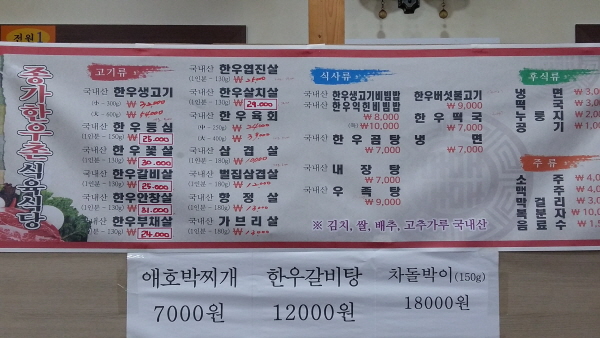 전원1
종가한우촌식육식당
고기류
국내산 한우생고기
(中 - 300g)
(大 - 400g)
국내산 한우등심
(1인분 - 130g) 25.000
국내산 한우꽃살
(1인분 - 130g) 30.000
국내산 한우갈비살
(1인분 - 130g) 25.000
국내산 한우안창살
(1인분 - 130g) 31.000
국내산 한우부채살
(1인분 - 130g) 24.000
국내산 한우업진살
(1인분 - 130g)
국내산 한우살치살
(1인분 - 130g) 29.000
국내산 한우육회
(中 - 250g)
(大 - 400g)
국내산 삼겹살
(1인분 - 180g)
국내산 벌집삼겹살
(1인분 - 180g)
국내산 항정살
(1인분 - 180g)
국내산 가브리살
(1인분 - 180g)
식사류
국내산 한우생고기비빔밥
국내산 한우익힌비빔밥
₩8,000
(특) ₩10,000
국내산 한우곰탕
₩7,000
국내산 내장탕
₩7,000
국내산 우족탕
₩9,000
한우버섯불고기
₩9,000
한우떡국
₩7,000
냉면
₩7,000
후식류
냉면
떡국
누룽지
공기
주류
소주
맥주
막걸리
복분자
음료수
※ 김치, 쌀, 배추, 고추가루 국내산
애호박찌개
7000원
한우갈비탕
12000원
차돌박이(150g)
18000원